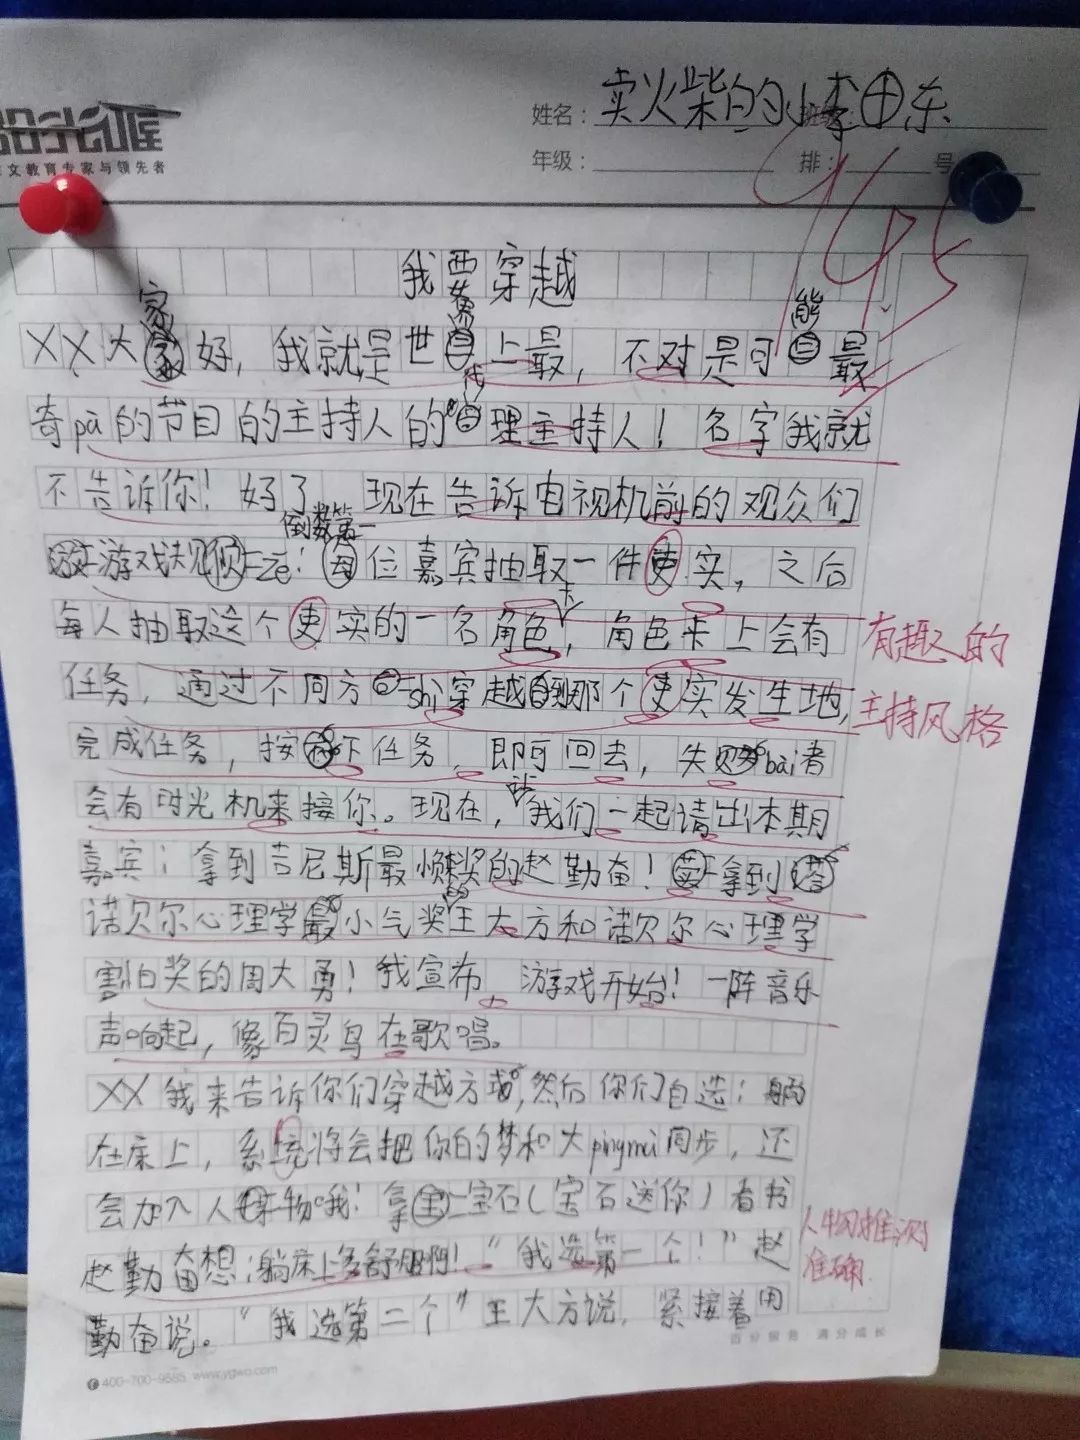 文教育专家与领先者
姓名：卖火柴的小李田东
年级： 排： 号
945
我要穿越
XX大家好，我就是世界上最，不对是可能最
奇pā的节目的主持人的代理主持人！名字我就
不告诉你！好了 现在告诉电视机前的观众们
游戏规zé：倒数第一位嘉宾抽取一件吏实，之后
每人抽取这个吏实的一名角色卡，角色卡上会有
任务，通过不同方shì穿越到那个吏实发生地，
完成任务，按下任务，即可回去，失bai者
会有时光机来接你。现在，我们一起请出本期
嘉宾：拿到吉尼斯最懒奖的赵勤奋！拿到
诺贝尔心理学最小气奖的王大方和诺贝尔心理学
割白奖的周大勇！我宣布 游戏开始！一阵音乐
声响起，像百灵鸟在歌唱。
有趣的
主持风格
XX我来告诉你们穿越方，然后你们自选：躺
在床上，系统将会把你的梦和大pingmu同步，还
会加入人物哦！拿宝石（宝石送你）看书
赵勤奋想：躺床上多舒服啊！“我选第一个！”赵
勤奋说。“我选第二个”王大方说，紧接着用
人物推测
准确
百分服务 满分成长
400-700-9585 www.ygwo.com